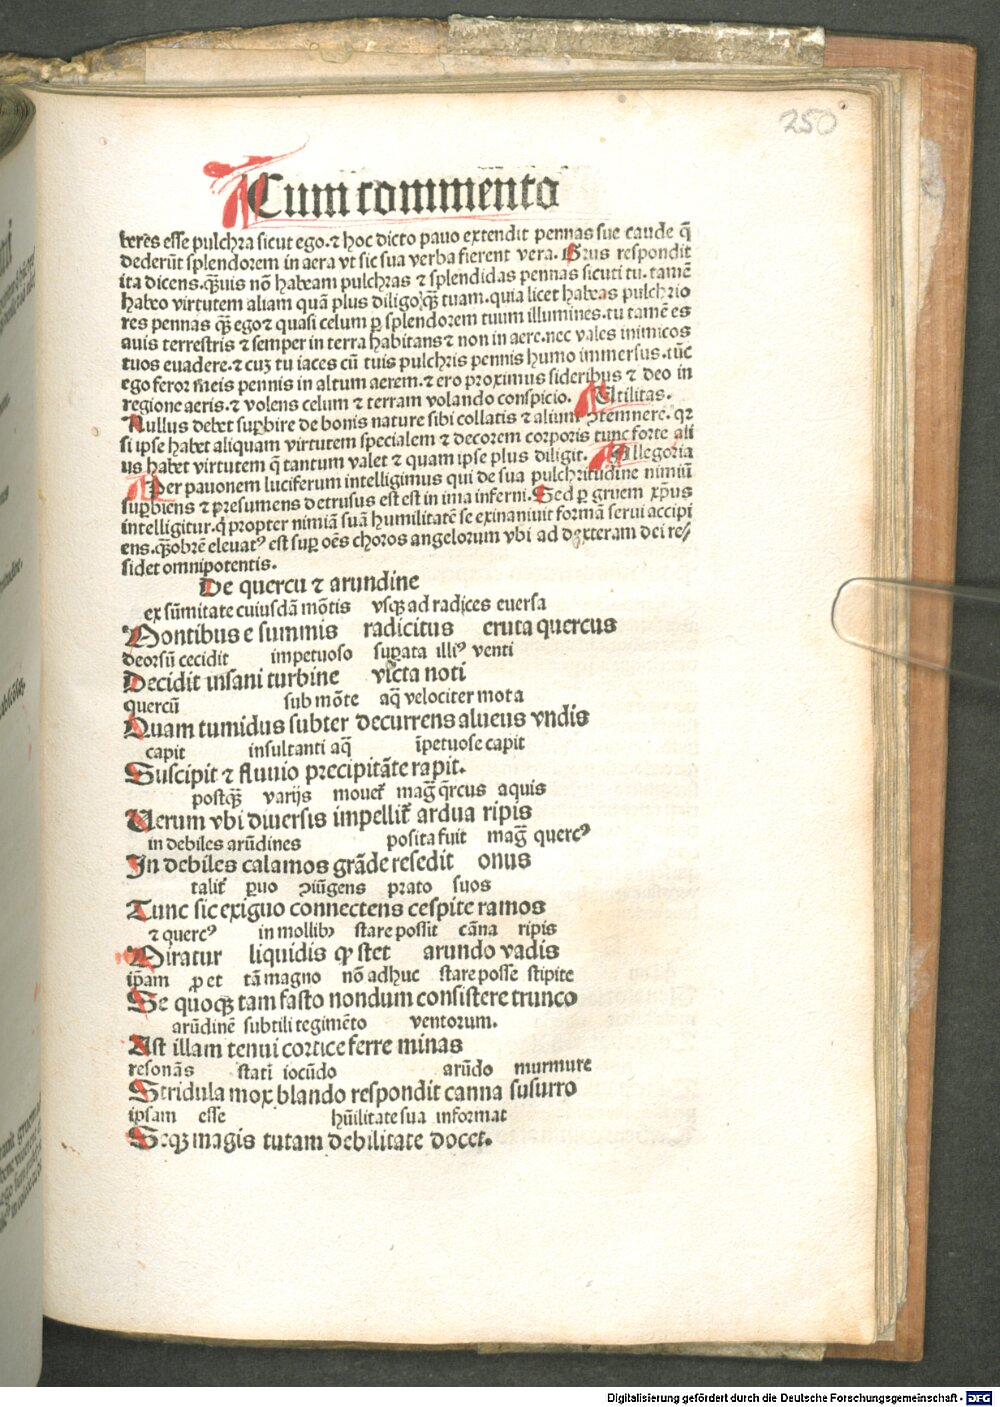 250
Cum commento
beres esse pulchra sicut ego. ⁊ hoc dicto pauo extendit pennas sue caude q̄
dederūt splendorem in aera vt sic sua verba fierent vera. Grus respondit
ita dicens. q̄uis nō habeam pulchras ⁊ splendidas pennas sicuti tu. tamē
habeo virtutem aliam quā plus diligo q̄ꝫ tuam. quia licet habeas pulchrio
res pennas q̄ꝫ ego ⁊ quasi celum ꝑ splendorem tuum illumines. tu tamē es
auis terrestris ⁊ semper in terra habitans ⁊ non in aere. nec vales inimicos
tuos euadere. ⁊ cuꝫ tu iaces cū tuis pulchris pennis humo immersus. tūc
ego feror meis pennis in altum aerem. ⁊ ero proximus sideribus ⁊ deo in
regione aeris. ⁊ volens celum ⁊ terram volando conspicio. Utilitas.
Nullus debet suꝑbire de bonis nature sibi collatis ⁊ alium ꝯtemnere. qꝛ
si ipse habet aliquam virtutem specialem ⁊ decorem corporis tunc forte ali
us habet virtutem q̄ tantum valet ⁊ quam ipse plus diligit. Allegoria
Per pauonem luciferum intelligimus qui de sua pulchritudine nimiū
suꝑbiens ⁊ presumens detrusus est est in ima inferni. Sed ꝑ gruem xp̄us
intelligitur. q̇ propter nimiā suā humilitatē se exinaniuit formā serui accipi
ens. q̄ꝫobrē eleuatꝰ est suꝑ oēs choros angelorum vbi ad dexteram dei re/
sidet omnipotentis.
De quercu ⁊ arundine
ex sūmitate cuiusdā mōtis vsqꝫ ad radices euersa
Montibus e summis radicitus eruta quercus
deorsū cecidit impetuoso suꝑata illiꝰ venti
Decidit insani turbine victa noti
quercū sub mōte aq̄ velociter mota
Quam tumidus subter decurrens alueus vndis
capit insultanti aq̄ īpetuose capit
Suscipit ⁊ fluuio precipitāte rapit.
postq̄ꝫ varijs mouet̄ maḡ q̄rcus aquis
Uerum vbi diuersis impellit̄ ardua ripis
in debiles arūdines posita fuit maḡ quercꝰ
In debiles calamos grāde resedit onus
talit̄ ꝑuo ꝯiūgens prato suos
Tunc sic exiguo connectens cespite ramos
⁊ quercꝰ in mollibꝰ stare possit cāna ripis
Miratur liquidis ꝙ stet arundo vadis
ip̄am ꝓ et tā magno nō adhuc stare posse stipite
Se quoqꝫ tam fasto nondum consistere trunco
arūdinē subtili tegimēto ventorum.
Ast illam tenui cortice ferre minas
resonās stati iocūdo arūdo murmure
Stridula mox blando respondit canna susurro
ipsam esse hūilitate sua informat
Seqꝫ magis tutam debilitate docet.
Digitalisierung gefördert durch die Deutsche Forschungsgemeinschaft - DFG